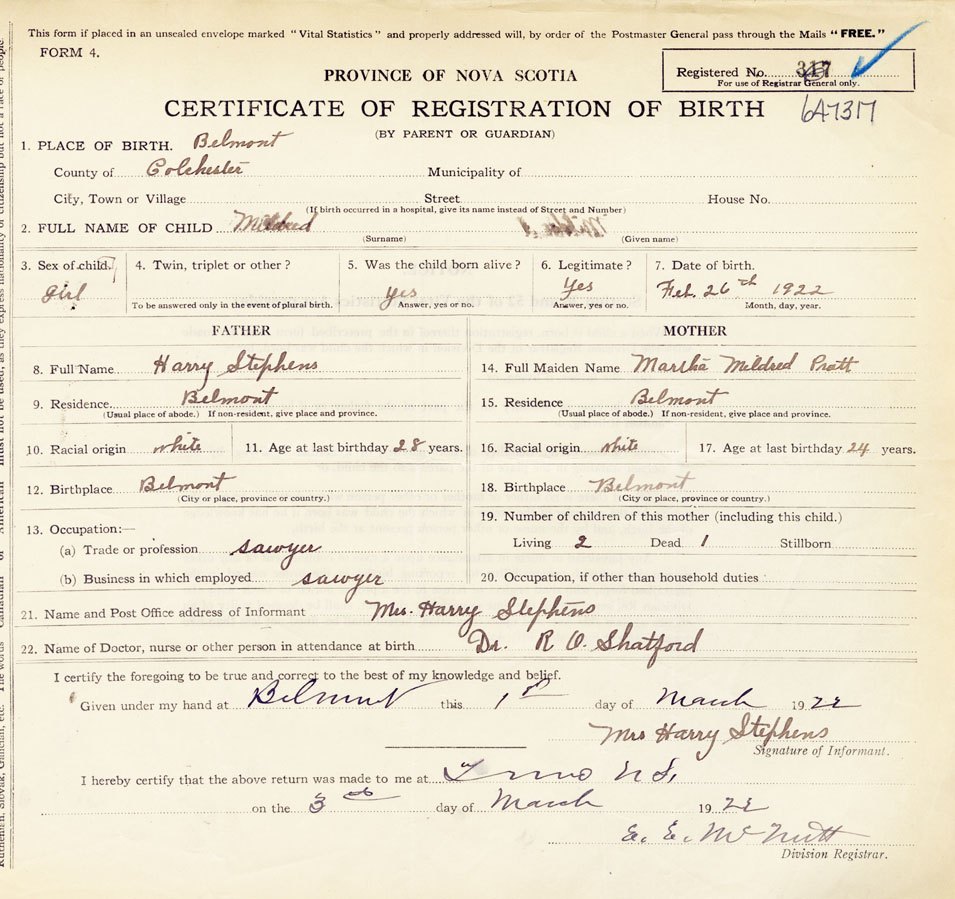 This form if placed in an unsealed envelope marked "Vital Statistics" and properly addressed will, by order of the Postmaster General pass through the Mails "FREE."
FORM 4.
PROVINCE OF NOVA SCOTIA
Registered No. 317
For use of Registrar General only.
CERTIFICATE OF REGISTRATION OF BIRTH
(BY PARENT OR GUARDIAN)
1. PLACE OF BIRTH. Belmont
County of Colchester Municipality of
City, Town or Village Street House No.
(If birth occurred in a hospital, give its name instead of Street and Number)
2. FULL NAME OF CHILD Mildred
(Surname) (Given name)
3. Sex of child. 4. Twin, triplet or other? 5. Was the child born alive? 6. Legitimate? 7. Date of birth.
girl yes Yes Feb. 26th 1922
To be answered only in the event of plural birth. Answer, yes or no. Answer, yes or no. Month, day, year.
FATHER MOTHER
8. Full Name Harry Stephens 14. Full Maiden Name Martha Mildred Pratt
9. Residence Belmont 15. Residence Belmont
(Usual place of abode.) If non-resident, give place and province. (Usual place of abode.) If non-resident, give place and province.
10. Racial origin white 11. Age at last birthday 28 years. 16. Racial origin white 17. Age at last birthday 24 years.
12. Birthplace Belmont 18. Birthplace Belmont
(City or place, province or country.) (City or place, province or country.)
13. Occupation:— 19. Number of children of this mother (including this child.)
(a) Trade or profession sawyer Living 2 Dead 1 Stillborn
(b) Business in which employed sawyer 20. Occupation, if other than household duties
21. Name and Post Office address of Informant Mrs. Harry Stephens
22. Name of Doctor, nurse or other person in attendance at birth Dr. R O. Shatford
I certify the foregoing to be true and correct to the best of my knowledge and belief.
Given under my hand at Belmont this 1st day of March 1922
Mrs Harry Stephens
Signature of Informant.
I hereby certify that the above return was made to me at Truro N S,
on the 3rd day of March 1922
E. E. McNutt
Division Registrar.